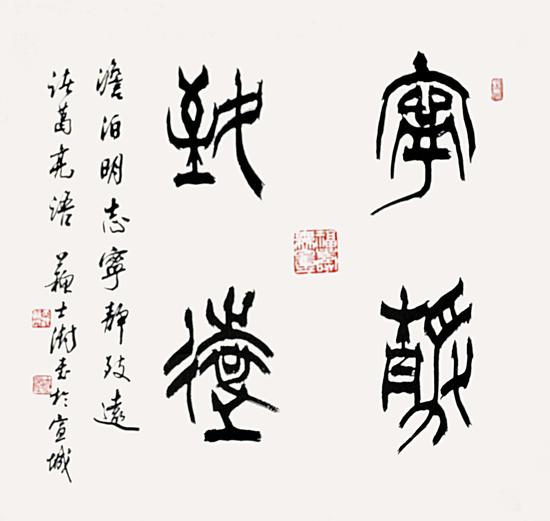 寧靜
致遠
澹泊明志寧靜致遠
諸葛亮語 蘇士澍書於宣城